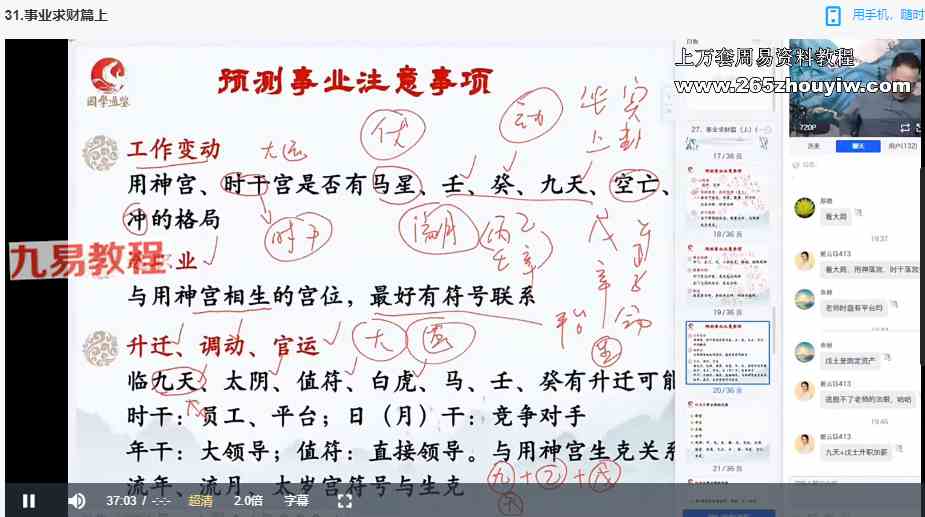 31.事业求财篇上
用手机，随时
上万套周易资料教程
www.265zhouyiw.com
預测事业注意事项
工作变动
用神宫、时干宫是否有马星、壬、癸、九天、空亡、
冲的格局
九易教程
业
与用神宫相生的宫位，最好有符号联系
升迁、调动、官运
临九天、太阴、值符、白虎、马、壬、癸有升迁可能
时干：员工、平台；日（月）干：竞争对手
年干：大领导；值符：直接领导。与用神宫生克关系
流年、流月、太岁宫符号与生克
大运
伏
动
时干
九+乙+戊
37:03 / -:-:-
超清
2.0倍
字幕
27、事业求财篇（上）(
17/36页
18/36页
19/36页
20/36页
21/36页
720P
历史
聊天
用户(132)
看大局
19:37
看大局，用神落宫，时干落宫
老师时盘有平台吗
戊土是固定资产
逃脱不了老师的法眼，哈哈
19:45
九天+戊土升职加薪